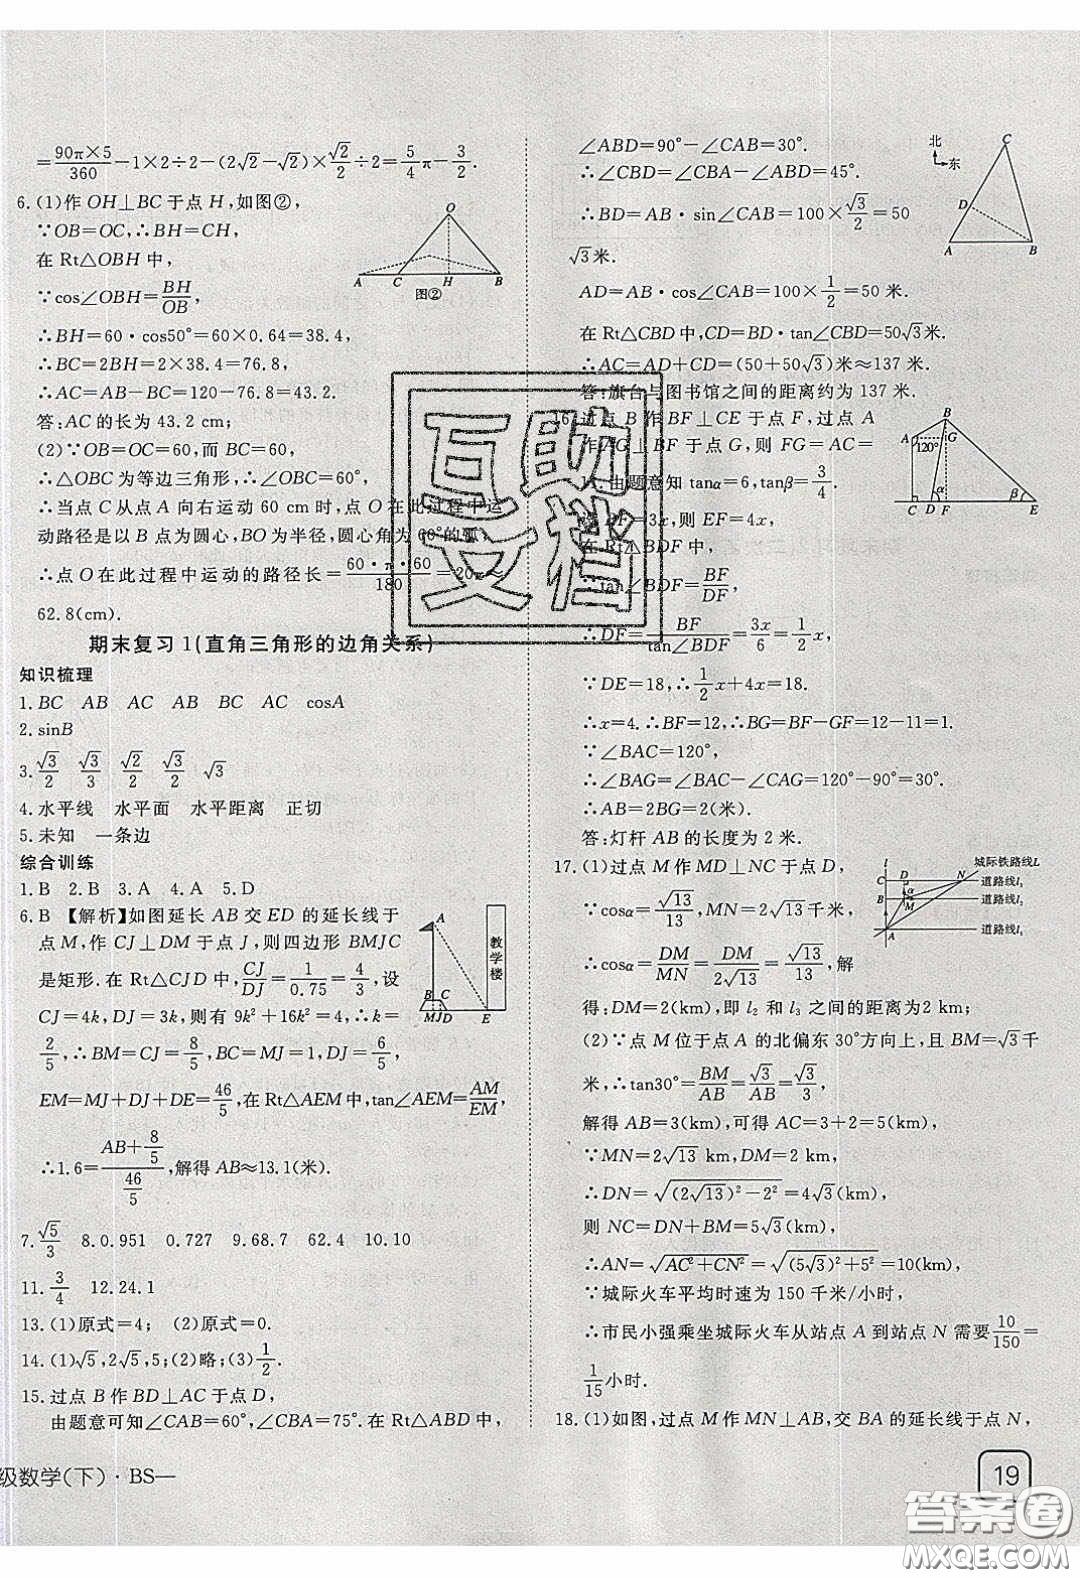 =90π×5/360-1×2÷2-(2√2-√2)×√2/2÷2=5/4π-3/2.
6.(1)作OH⊥BC于点H,如图②,
∵OB=OC,∴BH=CH,
在Rt△OBH中,
∵cos∠OBH=BH/OB,
∴BH=60·cos50°=60×0.64=38.4,
∴BC=2BH=2×38.4=76.8,
∴AC=AB-BC=120-76.8=43.2.
答:AC的长为43.2 cm;
(2)∵OB=OC=60,而BC=60,
∴△OBC为等边三角形,∴∠OBC=60°,
∴当点C从点A向右运动60 cm时,点O在此过程中运
动路径是以B点为圆心,BO为半径,圆心角为60°的弧,
∴点O在此过程中运动的路径长=60·π·60/180=20π≈
62.8(cm).
O
A C H B
图②
期末复习1(直角三角形的边角关系)
知识梳理
1.BC AB AC AB AC cosA
2.sinB
3.√3/2 √3/3 √2/2 √3/2 √3
4.水平线 水平面 水平距离 正切
5.未知 一条边
综合训练
1.B 2.B 3.A 4.A 5.D
6.B 【解析】如图延长AB交ED的延长线于
点M,作CJ⊥DM于点J,则四边形BMJC
是矩形.在Rt△CJD中,CJ/DJ=1/0.75=4/3,设
CJ=4k,DJ=3k,则有9k²+16k²=4,∴k=
2/5,∴BM=CJ=8/5,BC=MJ=1,DJ=6/5,
EM=MJ+DJ+DE=46/5,在Rt△AEM中,tan∠AEM=AM/EM,
∴1.6=(AB+8/5)/(46/5),解得AB≈13.1(米).
A
教学楼
B C
MJD E
7.√5/3 8.0.951 0.727 9.68.7 62.4 10.10
11.3/4 12.24.1
13.(1)原式=4; (2)原式=0.
14.(1)√5,2√5,5;(2)略;(3)1/2.
15.过点B作BD⊥AC于点D,
由题意可知∠CAB=60°,∠CBA=75°.在Rt△ABD中,
级数学(下)·BS—
∠ABD=90°-∠CAB=30°.
∴∠CBD=∠CBA-∠ABD=45°.
∴BD=AB·sin∠CAB=100×√3/2=50
√3米.
AD=AB·cos∠CAB=100×1/2=50米.
在Rt△CBD中,CD=BD·tan∠CBD=50√3米.
∴AC=AD+CD=(50+50√3)米≈137米.
答:旗台与图书馆之间的距离约为137米.
北
东
C
D
A B
16.过点B作BF⊥CE于点F,过点A
作AG⊥BF于点G,则FG=AC=
11.由题意知tanα=6,tanβ=3/4.
设BF=3x,则EF=4x,
在Rt△BDF中,
∵tan∠BDF=BF/DF,
∴DF=BF/tan∠BDF=3x/6=1/2x,
∵DE=18,∴1/2x+4x=18.
∴x=4.∴BF=12,∴BG=BF-GF=12-11=1.
∵∠BAC=120°,
∴∠BAG=∠BAC-∠CAG=120°-90°=30°.
∴AB=2BG=2(米).
答:灯杆AB的长度为2米.
B
A 120° G
α β
C D F E
17.(1)过点M作MD⊥NC于点D,
∵cosα=√13/13,MN=2√13千米,
∴cosα=DM/MN=DM/2√13=√13/13,解
得:DM=2(km),即l₂和l₃之间的距离为2 km;
(2)∵点M位于点A的北偏东30°方向上,且BM=√3千
米,∴tan30°=BM/AB=√3/AB=√3/3,
解得AB=3(km),可得AC=3+2=5(km),
∵MN=2√13 km,DM=2 km,
∴DN=√((2√13)²-2²)=4√3(km),
则NC=DN+BM=5√3(km),
∴AN=√(AC²+CN²)=√((5√3)²+5²)=10(km),
∵城际火车平均时速为150千米/小时,
∴市民小强乘坐城际火车从站点A到站点N需要10/150=
1/15小时.
l 城际铁路线L
C D N 道路线l₃
B α M 道路线l₂
A 道路线l₁
18.(1)如图,过点M作MN⊥AB,交BA的延长线于点N,
19
互助
文档
答案圈
MXQE.COM